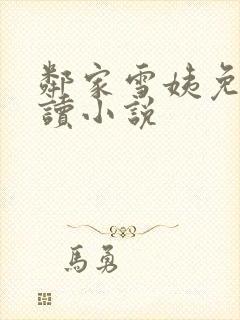 鄰家雪姨免
讀小說
馬勇